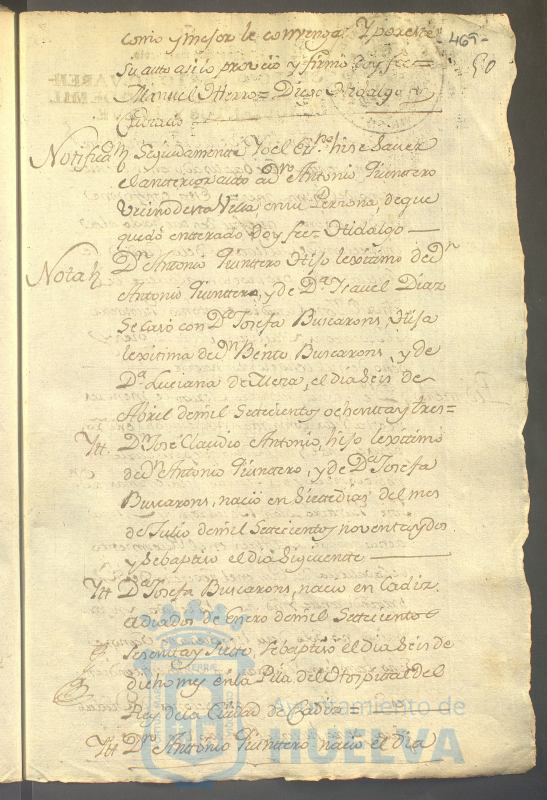 -469-
50
como y mejor le convenga: Y por este
su auto asi lo proveio y firmó doy fee=
Manuel Hierro= Diego Hidalgo
Notificaⁿ Seguidamente Yo el Esⁿᵒ hise saver
el anterior auto a Dⁿ Antonio Quintero
Vecino de esta Villa, en su Persona, de que
quedó enterado doy fee= Hidalgo—
Nota Dⁿ Antonio Quintero Hijo lexitimo de Dⁿ
Antonio Quintero, y de Dª Isavel Diaz
se casó con Dª Josefa Buscarons, Hija
lexitima de Dⁿ Bento Buscarons, y de
Dª Luciana de Mera, el dia seis de
Abril de mil Setecientos ochenta y tres=
Ytt. Dⁿ José Claudio Antonio, hijo lexitimo
de Dⁿ Antonio Quintero, y de Dª Josefa
Buscarons, nació en siete dias del mes
de Julio de mil Setecientos noventa y dos
y se baptiso el dia siguiente
Ytt Dª Josefa Buscarons, nació en Cadiz
a dia dos de Enero de mil Setecientos
Sesenta y Siete, se baptiso el dia seis de
dicho mes en la Pila del Hospital del
Rey de la Ciudad de Cadiz=
Ytt Dⁿ Antonio Quintero nació el dia
Ayuntamiento de
HUELVA